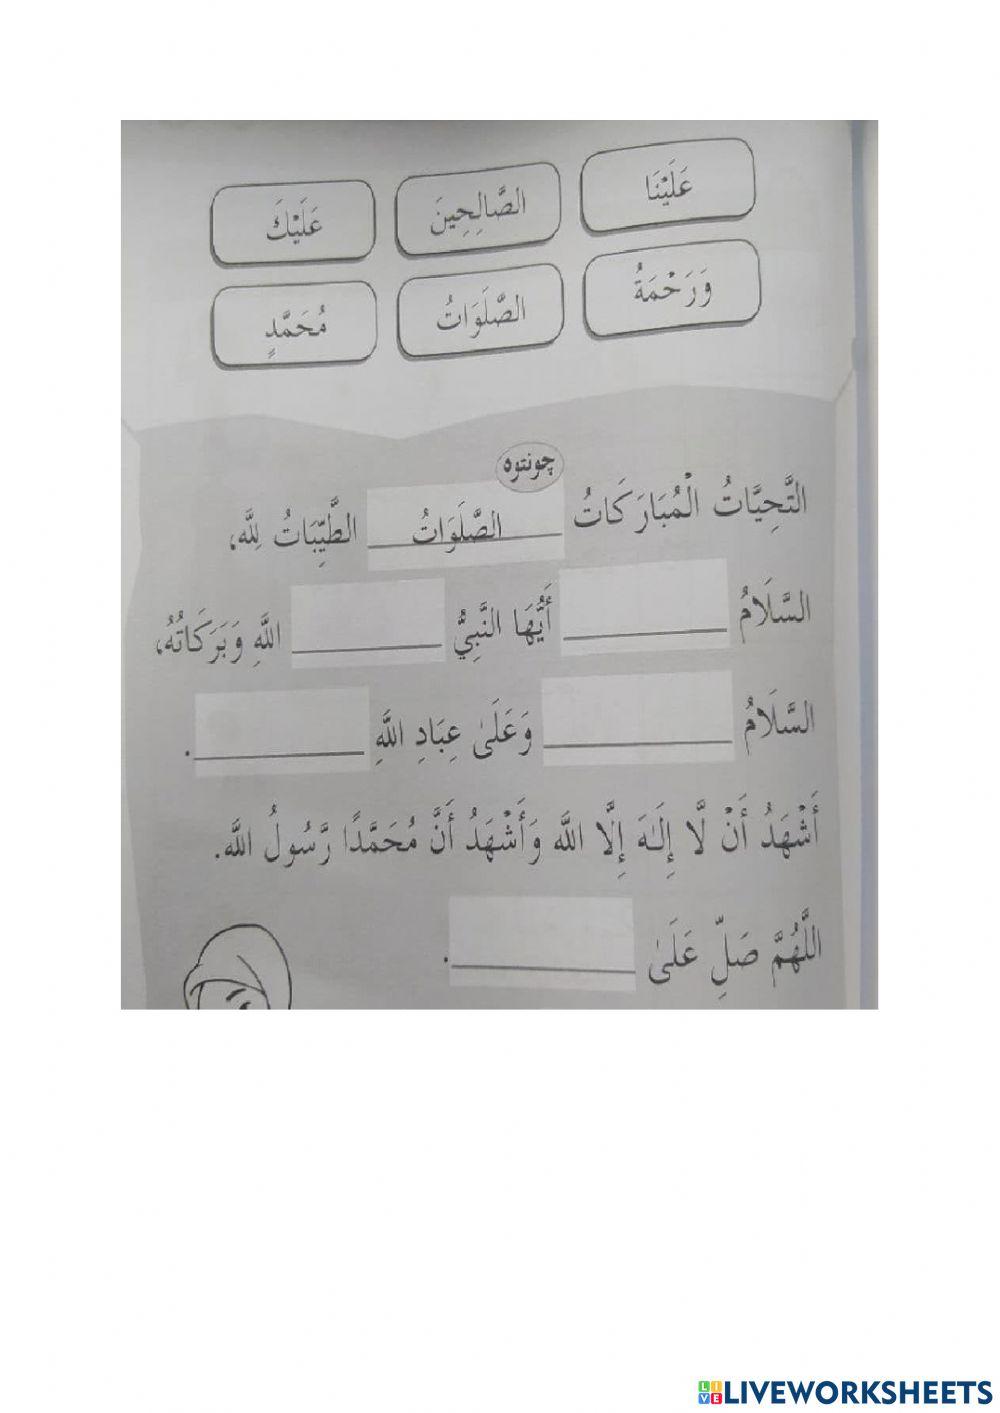 عَلَيْنَا الصَّالِحِينَ عَلَيْكَ
وَرَحْمَةُ الصَّلَوَاتُ مُحَمَّدٍ
چونتوه
التَّحِيَّاتُ الْمُبَارَكَاتُ الصَّلَوَاتُ الطَّيِّبَاتُ لِلَّه،
السَّلَامُ ________ أَيُّهَا النَّبِيُّ ________ اللَّهِ وَبَرَكَاتُهُ،
السَّلَامُ ________ وَعَلَىٰ عِبَادِ اللَّهِ ________.
أَشْهَدُ أَنْ لَّا إِلَـٰهَ إِلَّا اللَّه وَأَشْهَدُ أَنَّ مُحَمَّدًا رَّسُولُ اللَّه.
اللَّهُمَّ صَلِّ عَلَىٰ ________.
LIVEWORKSHEETS